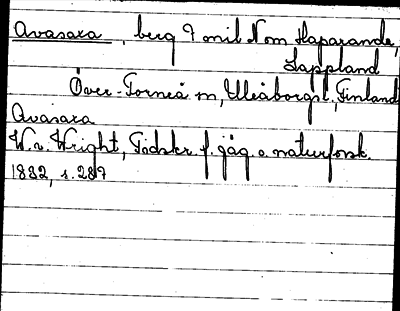 Avasaxa, berg 7 mil N om Haparanda,
Lappland
Över-Torneå sn, Uleåborgs l., Finland
Avasaxa
W. v. Wright, Tidskr. f. jäg. o. naturforsk.
1832, s. 287